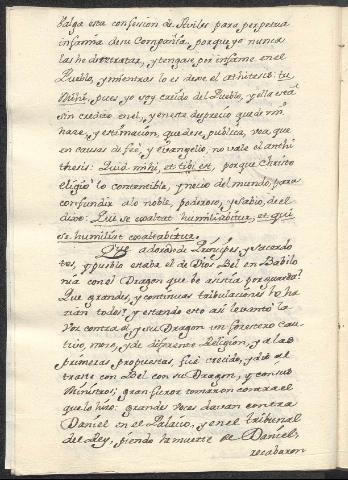 Valga esta confession de Aviles para perpetua
infamia de su Compañia, porque yo nunca
las he de retratar, y tengase por infame en el
Pueblo, y mientras lo es dese el athitesis: tu
Mihi, pues yo soy creido del Pueblo, y ella está
sin credito en el, y en este desprecio que de mi
hace, y estimacion, quedese publica, vea, que
en causas de feè, y evangelio, no vale el anthi
thesis: Quid mihi, et tibi est, porque Christo
eligiò lo contentible, y necio del mundo, para
confundir a lo noble, poderoso, y sabio, de el
dixo: Qui se exaltat humiliabitur, et qui
se humiliat exaltabitur.
Que adorado de Principes, y sacerdo
tes, y pueblo estaba el de Dios Bel en Babilo
nia con el Dragon que le asistia por guarda?
Que grandes, y continuas tribulaciones le ha
rian todos? y estando esto asi levantò la
voz contra el, y su Dragon un forastero cau
tivo, mozo, y de diferente Religion, y a las
primeras propuestas, fuè creido, y diò al
traste con Bel con su Dragon, y con sus
Ministros; gran furor tomaron contra el
que lo hizo: grandes voces davan contra
Daniel en el Palacio, y en el tribunal
del Rey, pidiendo la muerte de Daniel,
recabaron